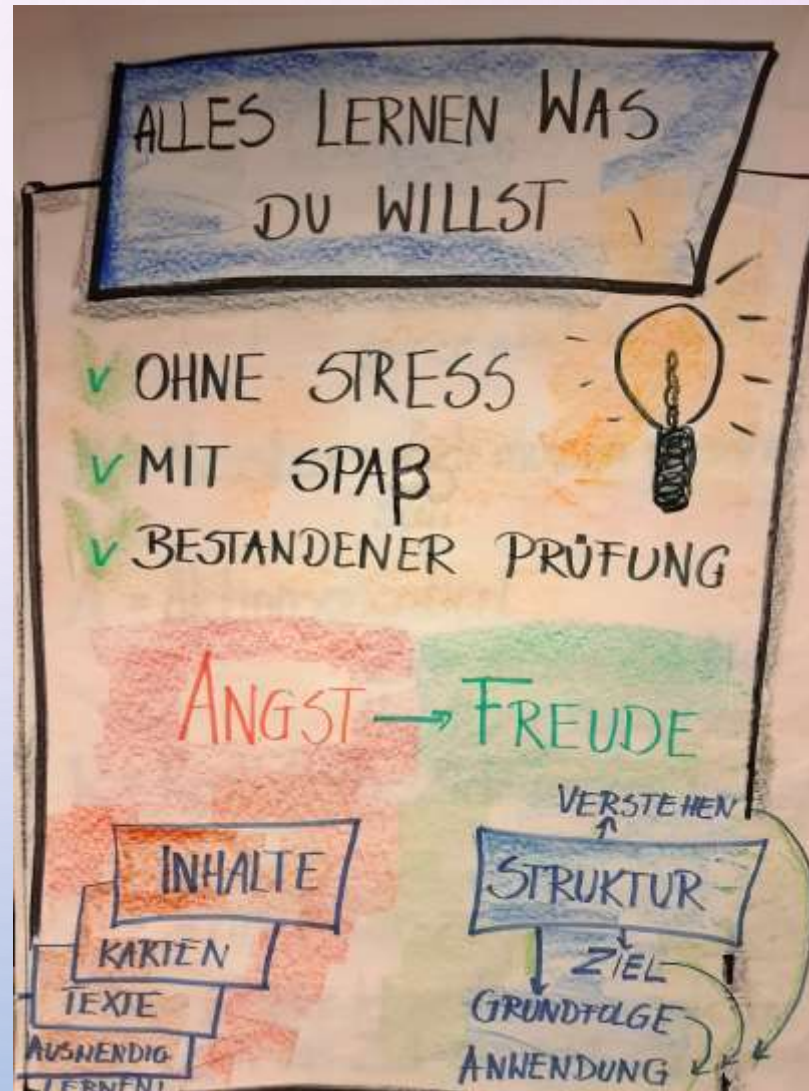 ALLES LERNEN WAS
DU WILLST
✓ OHNE STRESS
✓ MIT SPAß
✓ BESTANDENER PRÜFUNG
ANGST → FREUDE
INHALTE
KARTEN
TEXTE
AUSWENDIG
LERNEN!
VERSTEHEN
STRUKTUR
ZIEL
GRUNDFOLGE
ANWENDUNG